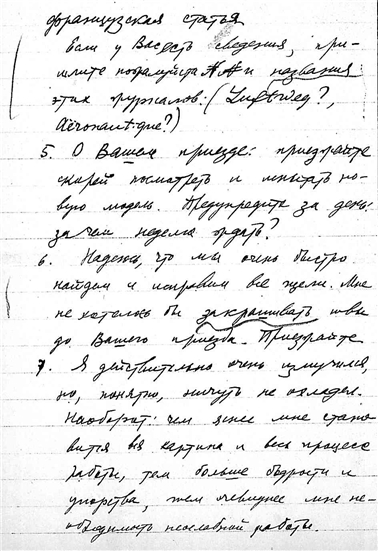 французская статья
Если у Вас есть сведения, при-
шлите пожалуйста №№ и названия
этих журналов: (Luftweg?,
Aéronautique?)
5. О Вашем приезде: приезжайте
скорей посмотреть и испытать но-
вую модель. Предупредите за день.
Зачем неделю ждать?
6. Надеюсь, что мы очень быстро
найдем и исправим все щели. Мне
не хотелось бы закрашивать швы
до Вашего приезда. Приезжайте
7. Я действительно очень измучился,
но, понятно, ничуть не охладел.
Наоборот: чем яснее мне стано-
вится вся картина и весь процесс
работы, тем больше бодрости и
упорства, тем очевиднее мне не-
обходимость неослабной работы.